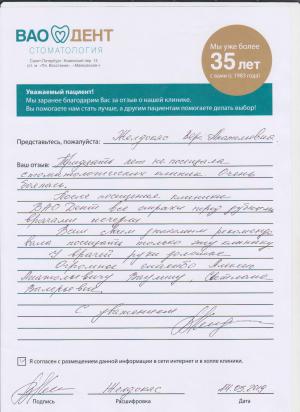 ВАО ДЕНТ
СТОМАТОЛОГИЯ
Санкт-Петербург, Коннная пер. 12
ст. м. «Пл. Восстания», «Маяковская»
Мы уже более
35 лет
с вами (с 1983 года)
Уважаемый пациент!
Мы заранее благодарим Вас за отзыв о нашей клинике.
Вы помогаете нам стать лучше, а другим пациентам помогаете делать выбор!
Представьтесь, пожалуйста: Желдокас Вера Анатольевна
Ваш отзыв: Тридцать лет не посещала
стоматологических клиник. Очень
боялась.
После посещения клиники
ВАО Дент все страхи перед зубными
врачами исчезли.
Всем своим знакомым рекомендо
вала посещать только эту клинику
У врачей руки золотые.
Огромное спасибо Алексею
Анатольевичу Ваулину, Светлане
Валерьевне.
С уважением
Я согласен с размещением данной информации в сети интернет и в холле клиники.
Желдокас
2019
Подпись
Расшифровка
Дата